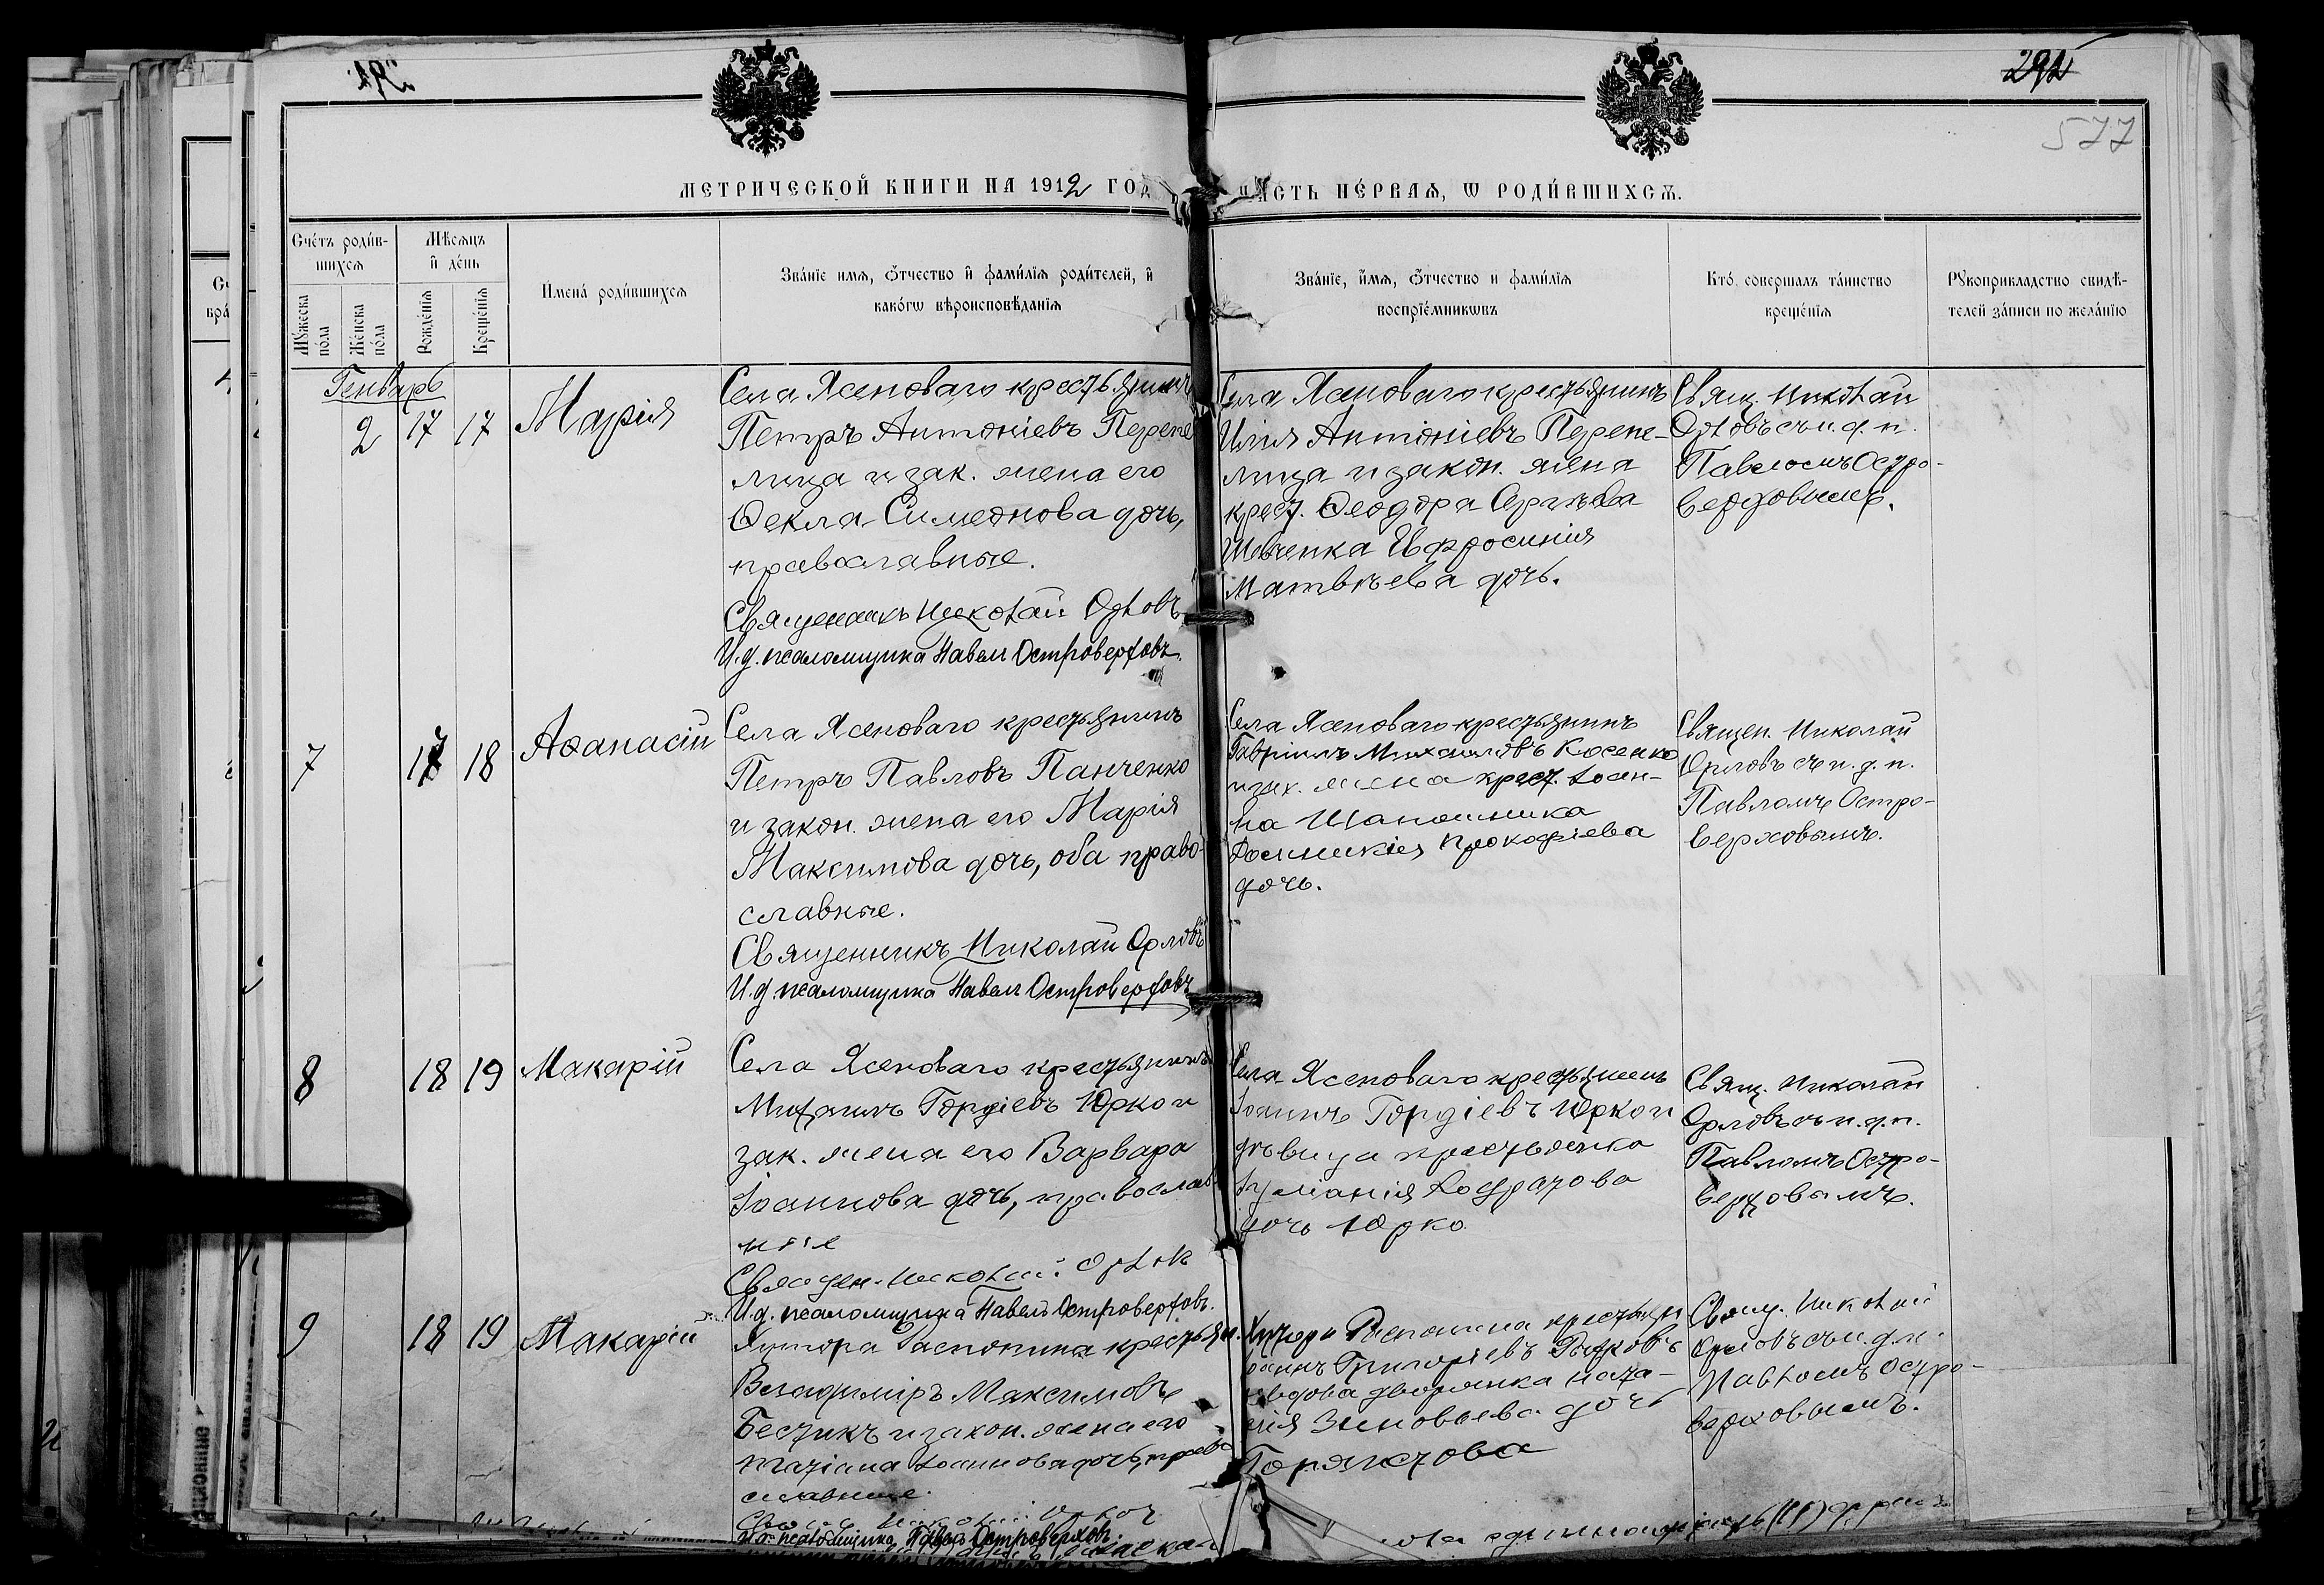 291
292
577
МЕТРИЧЕСКОЙ КНИГИ НА 1912 ГОД
ЧАСТЬ ПЕ́РВАЯ, Ѡ РОДИ́ВШИХСѦ.
Счéтъ роди́в-
шихсѧ
Мꙋ́жеска
по́ла
Же́нска
по́ла
Мѣсѧцъ
и҆ де́нь
Рожде́нїѧ
Креще́нїѧ
И҆мена́ роди́вшихсѧ
Зва́нїе имѧ, ѻ҆́тчество и҆ фами́лїѧ роди́телей, и҆
како́гѡ вѣроисповѣ́данїѧ
Зва́нїе, и҆́мѧ, ѻ҆́тчество и фами́лїѧ
воспрїе́мникѡвъ
Кто́ совершалъ та́инство
креще́нїѧ
Рꙋкоприкладство свидѣ́-
телей за́писи по жела́нїю
Генварь
2 17 17 Марія
Села Ясеноваго крестьянинъ
Петръ Антоніевъ Перепе
лица и зак. жена его
Ѳекла Симеонова дочь,
православные.
Священникъ Николай Орловъ
И.д. псаломщика Павелъ Островерховъ.
Села Ясеноваго крестьянинъ
Илія Антоніевъ Перепе-
лица и закон. жена
крест. Ѳеодора Сергѣева
Шевченка Евфросинія
Матвѣева дочь.
Свящ. Николай
Орловъ съ и. д. п.
Павломъ Остро-
верховымъ.
7 17 18 Аѳанасій
Села Ясеноваго крестьянинъ
Петръ Павловъ Панченко
и закон. жена его Марія
Максимова дочь, оба право-
славные.
Священникъ Николай Орловъ
И.д. псаломщика Павелъ Островерховъ
Села Ясеноваго крестьянинъ
Гавріилъ Михаиловъ Косенко
и зак. жена крест. Іоан-
на Шапошника
Домникія Прокофіева
дочь.
Священ. Николай
Орловъ съ и. д. п.
Павломъ Остро-
верховымъ.
8 18 19 Макарій
Села Ясеноваго крестьянинъ
Михаилъ Гордіевъ Юрко и
зак. жена его Варвара
Іоаннова дочь, православ
ные
Священ. Николай Орловъ
И.д. псаломщика Павелъ Островерховъ.
Села Ясеноваго крестьянинъ
Іоаннъ Гордіевъ Юрко и
дѣвица крестьянка
дочь Юрко
Свящ. Николай
Орловъ съ и. д. п.
Павломъ Остро-
верховымъ.
9 18 19 Макарій
Хутора Распопина крестьян.
Владиміръ Максимовъ
Бесчукъ и закон. жена его
Татіана Іоаннова дочь, право
славные.
Николай Орлов
И.д. псаломщика Павелъ Островерховъ.
Хутора Распопина крестьян
Іоаннъ Григоріевъ
вдова дворянка Ната-
лія Зиновьева дочь
Свящ. Николай
Орловъ съ и. д. п.
Павломъ Остро-
верховымъ.